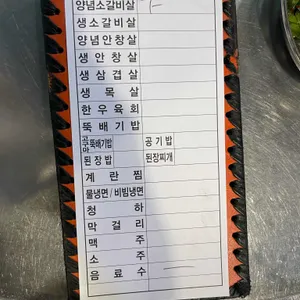 양념소갈비살
생소갈비살
양념안창살
생안창살
생삼겹살
생목살
한우육회
뚝배기밥
뚝배기밥 공기밥
된장밥 된장찌개
계란찜
물냉면/비빔냉면
청하
막걸리
맥주
소주
음료수